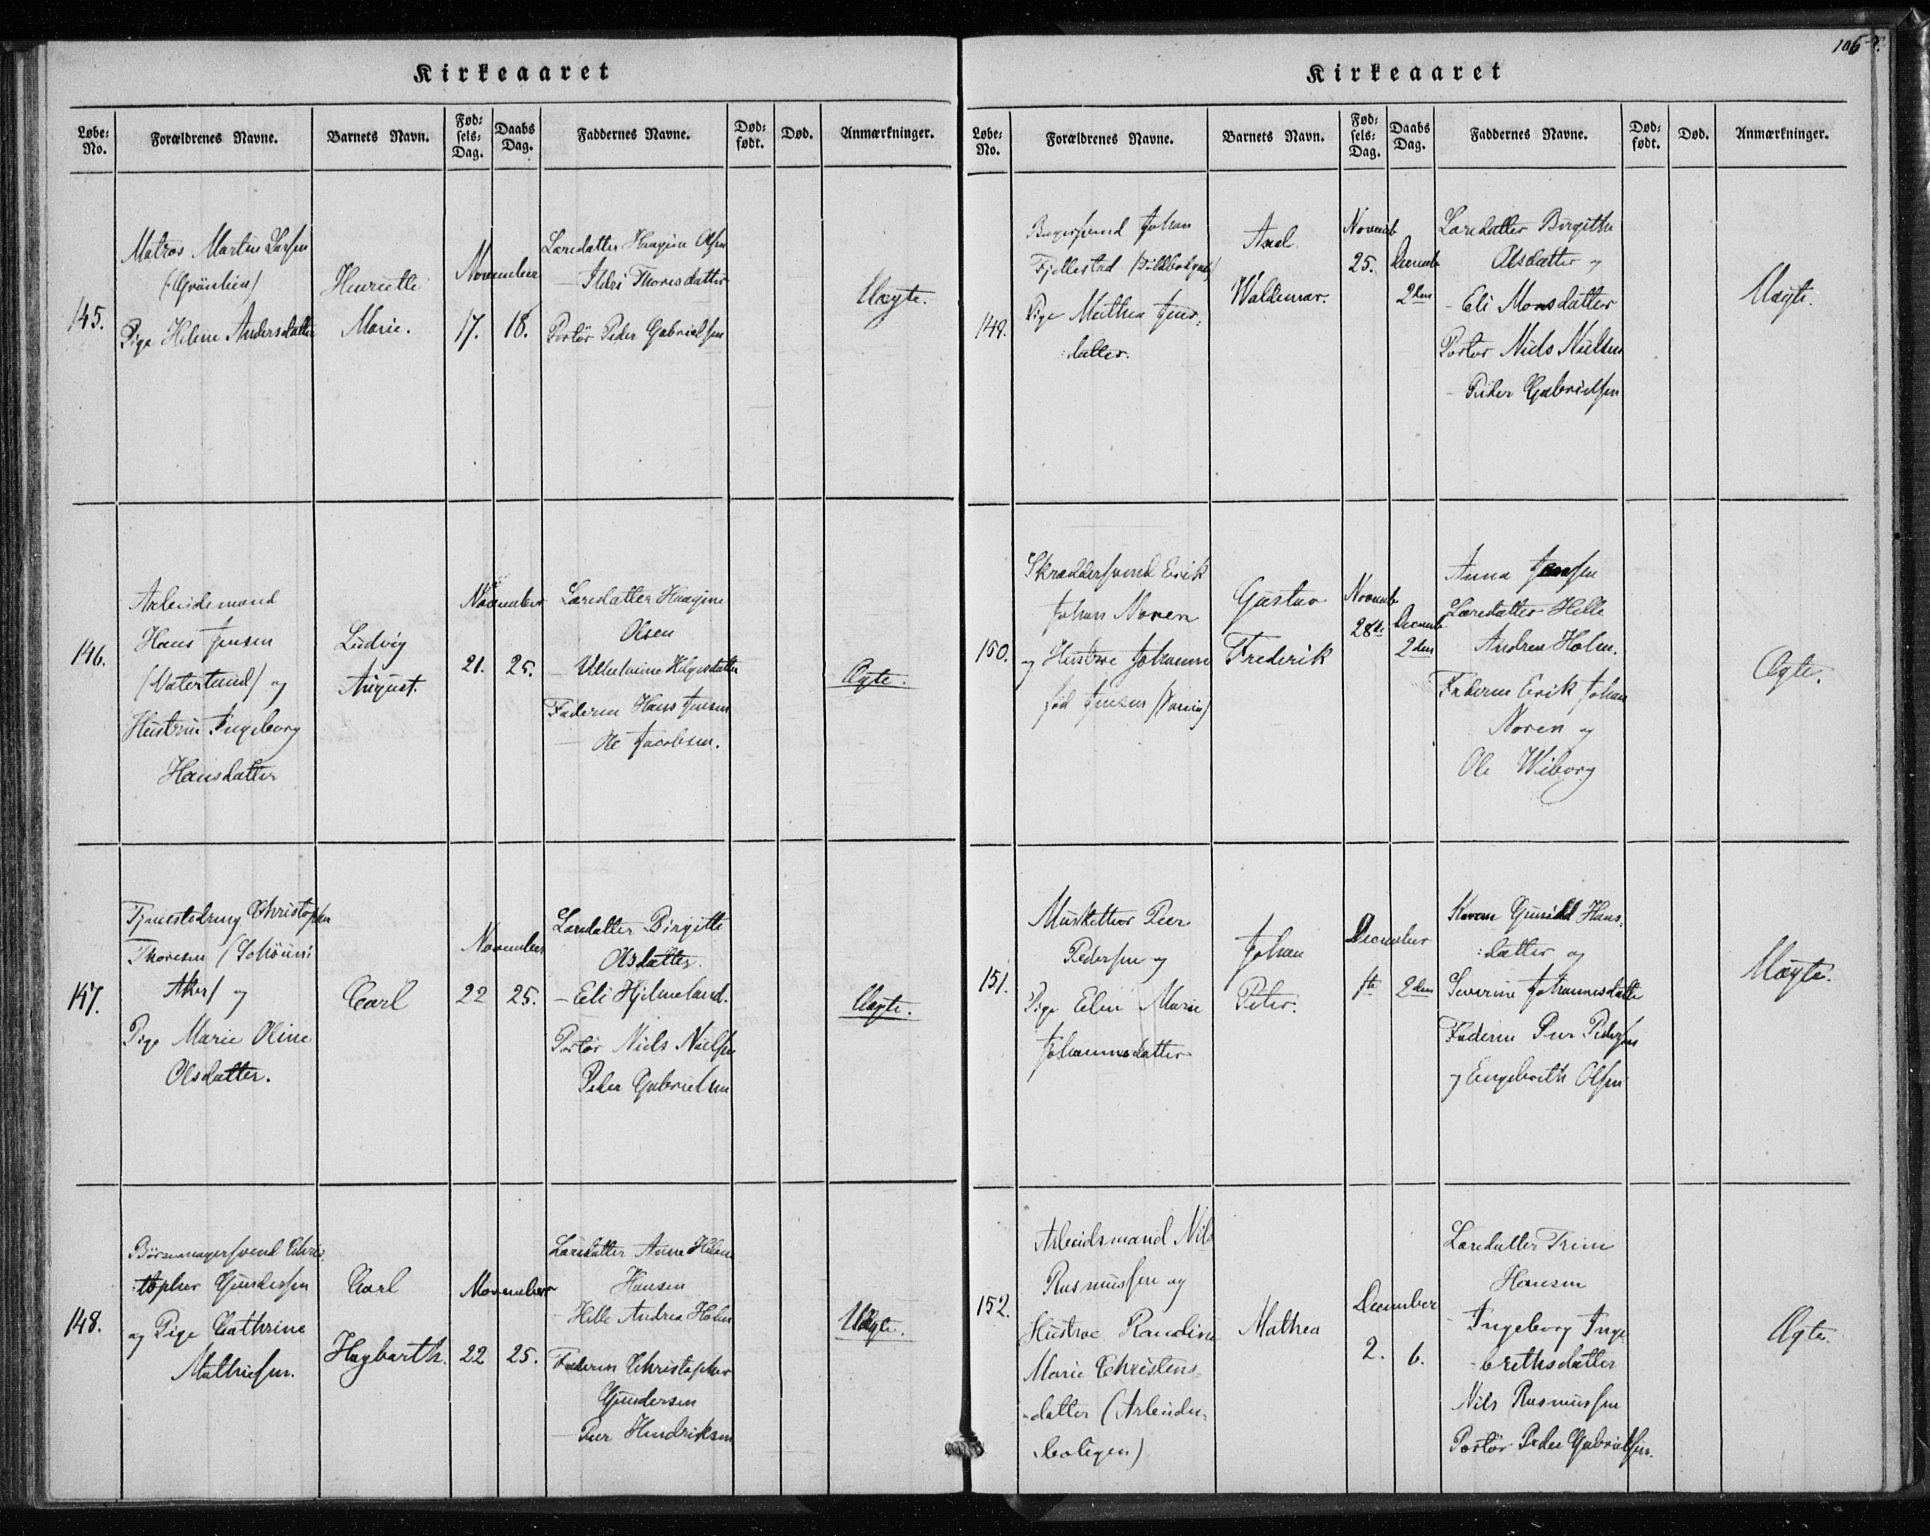 Kirkeaaret
Løbe: No.
Forældrenes Navne.
Barnets Navn.
Fød: sels: Dag.
Daabs Dag.
Faddernes Navne.
Død: født.
Død.
Anmærkninger.
145.
Matros Martin Larsen
(Grønlien)
Pige Helene Andersdatter
Henriette
Marie.
November
17. 18.
Løresdatter Haagine Olsen
— Thoresdatter
Portør Peder Gabrielsen
Uægte.
146.
Arbeidsmand
Hans Jensen
(Vaterland) og
Hustru Ingeborg
Hansdatter
Ludvig
August.
November
21. 25.
Haagine
Olsen
— Vilhelmine Helgesdatter
Faderen Hans Jensen
— Ole Jacobsen.
Ægte.
147.
Christopher
Thoresen
Aker) og
Pige Marie Oline
Olsdatter.
Carl
November
22 25.
Birgitte
Olsdatter.
— Eli Hjelmeland.
Portør Niels Nielsen
Peder Gabrielsen
Uægte.
148.
Chris
topher Gundersen
og Pige Cathrine
Mathiesen.
Carl
Hagbarth.
November
22 25.
Anne Helene
Hansen
— Helle Andrea Holm
Faderen Christopher
Gundersen
Peer Hendriksen
Uægte.
105
Kirkeaaret
Løbe: No.
Forældrenes Navne.
Barnets Navn.
Fød: sels: Dag.
Daabs Dag.
Faddernes Navne.
Død: født.
Død.
Anmærkninger.
149.
Bagersvend Johan
Fjellestad
Pige Mathea Jens:
:datter.
Axel
Waldemar.
Novemb
25.
Decemb
2den
Birgithe
Olsdatter og
— Eli Monsdatter
Portør Niels Nielsen
— Peder Gabrielsen
Uægte.
150.
Skræddersvend Erik
Johan Noren
og Hustroe Johanne
fød Jensen
Gustav
Frederik
Novemb
28de
Decemb
2den
Anna Jensen
Helle
Andrea Holm.
Faderen Erik Johan
Noren og
Ole Wiborg
Ægte.
151.
Musketteer Peer
Pedersen og
Pige Elen Marie
Johannesdatter
Johan
Peter.
December
1ste 2den
Karen Gunild Hans:
:datter og
Severine Johannesdatter
Faderen Peer Pedersen
og Engebreth Olsen
Uægte.
152.
Arbeidsmand Nils
Rasmussen og
Hustroe Randine
Marie Christens-
-datter (Arbeider-
boligen)
Mathea
December
2. 6.
Trine
Hansen
- Ingeborg Inge
-brethsdatter
Nils Rasmussen
Portør Peder Gabrielsen.
Ægte.